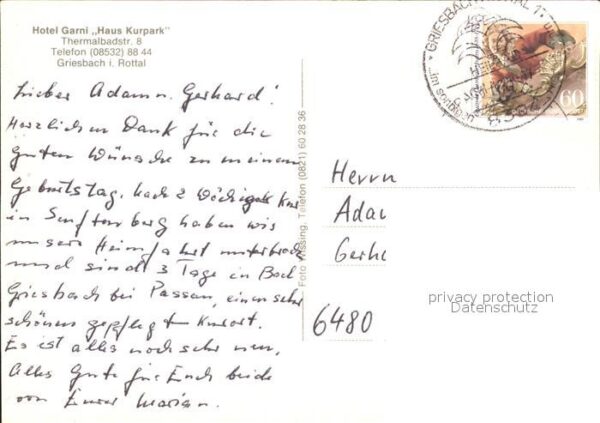 Hotel Garni „Haus Kurpark"
Thermalbadstr. 8
Telefon (08532) 88 44
Griesbach i. Rottal
Lieber Adam u. Gerhard!
Herzlichen Dank für die
guten Wünsche zu meinem
Geburtstag. Nach 2 wöchiger Kur
in Senftenberg haben wir
unsere Heimfahrt unterbroch.
und sind 3 Tage in Bad
Griesbach bei Passau, einem sehr
schönen gepflegten Kurort.
Es ist alles noch sehr neu,
Alles Gute für Euch beide
von Eurer Marian.
Foto Wissing, Telefon (0821) 60 28 36
GRIESBACH I. ROTTAL 1
8394
60
Herrn
Adam
Gerh
6480
privacy protection
Datenschutz